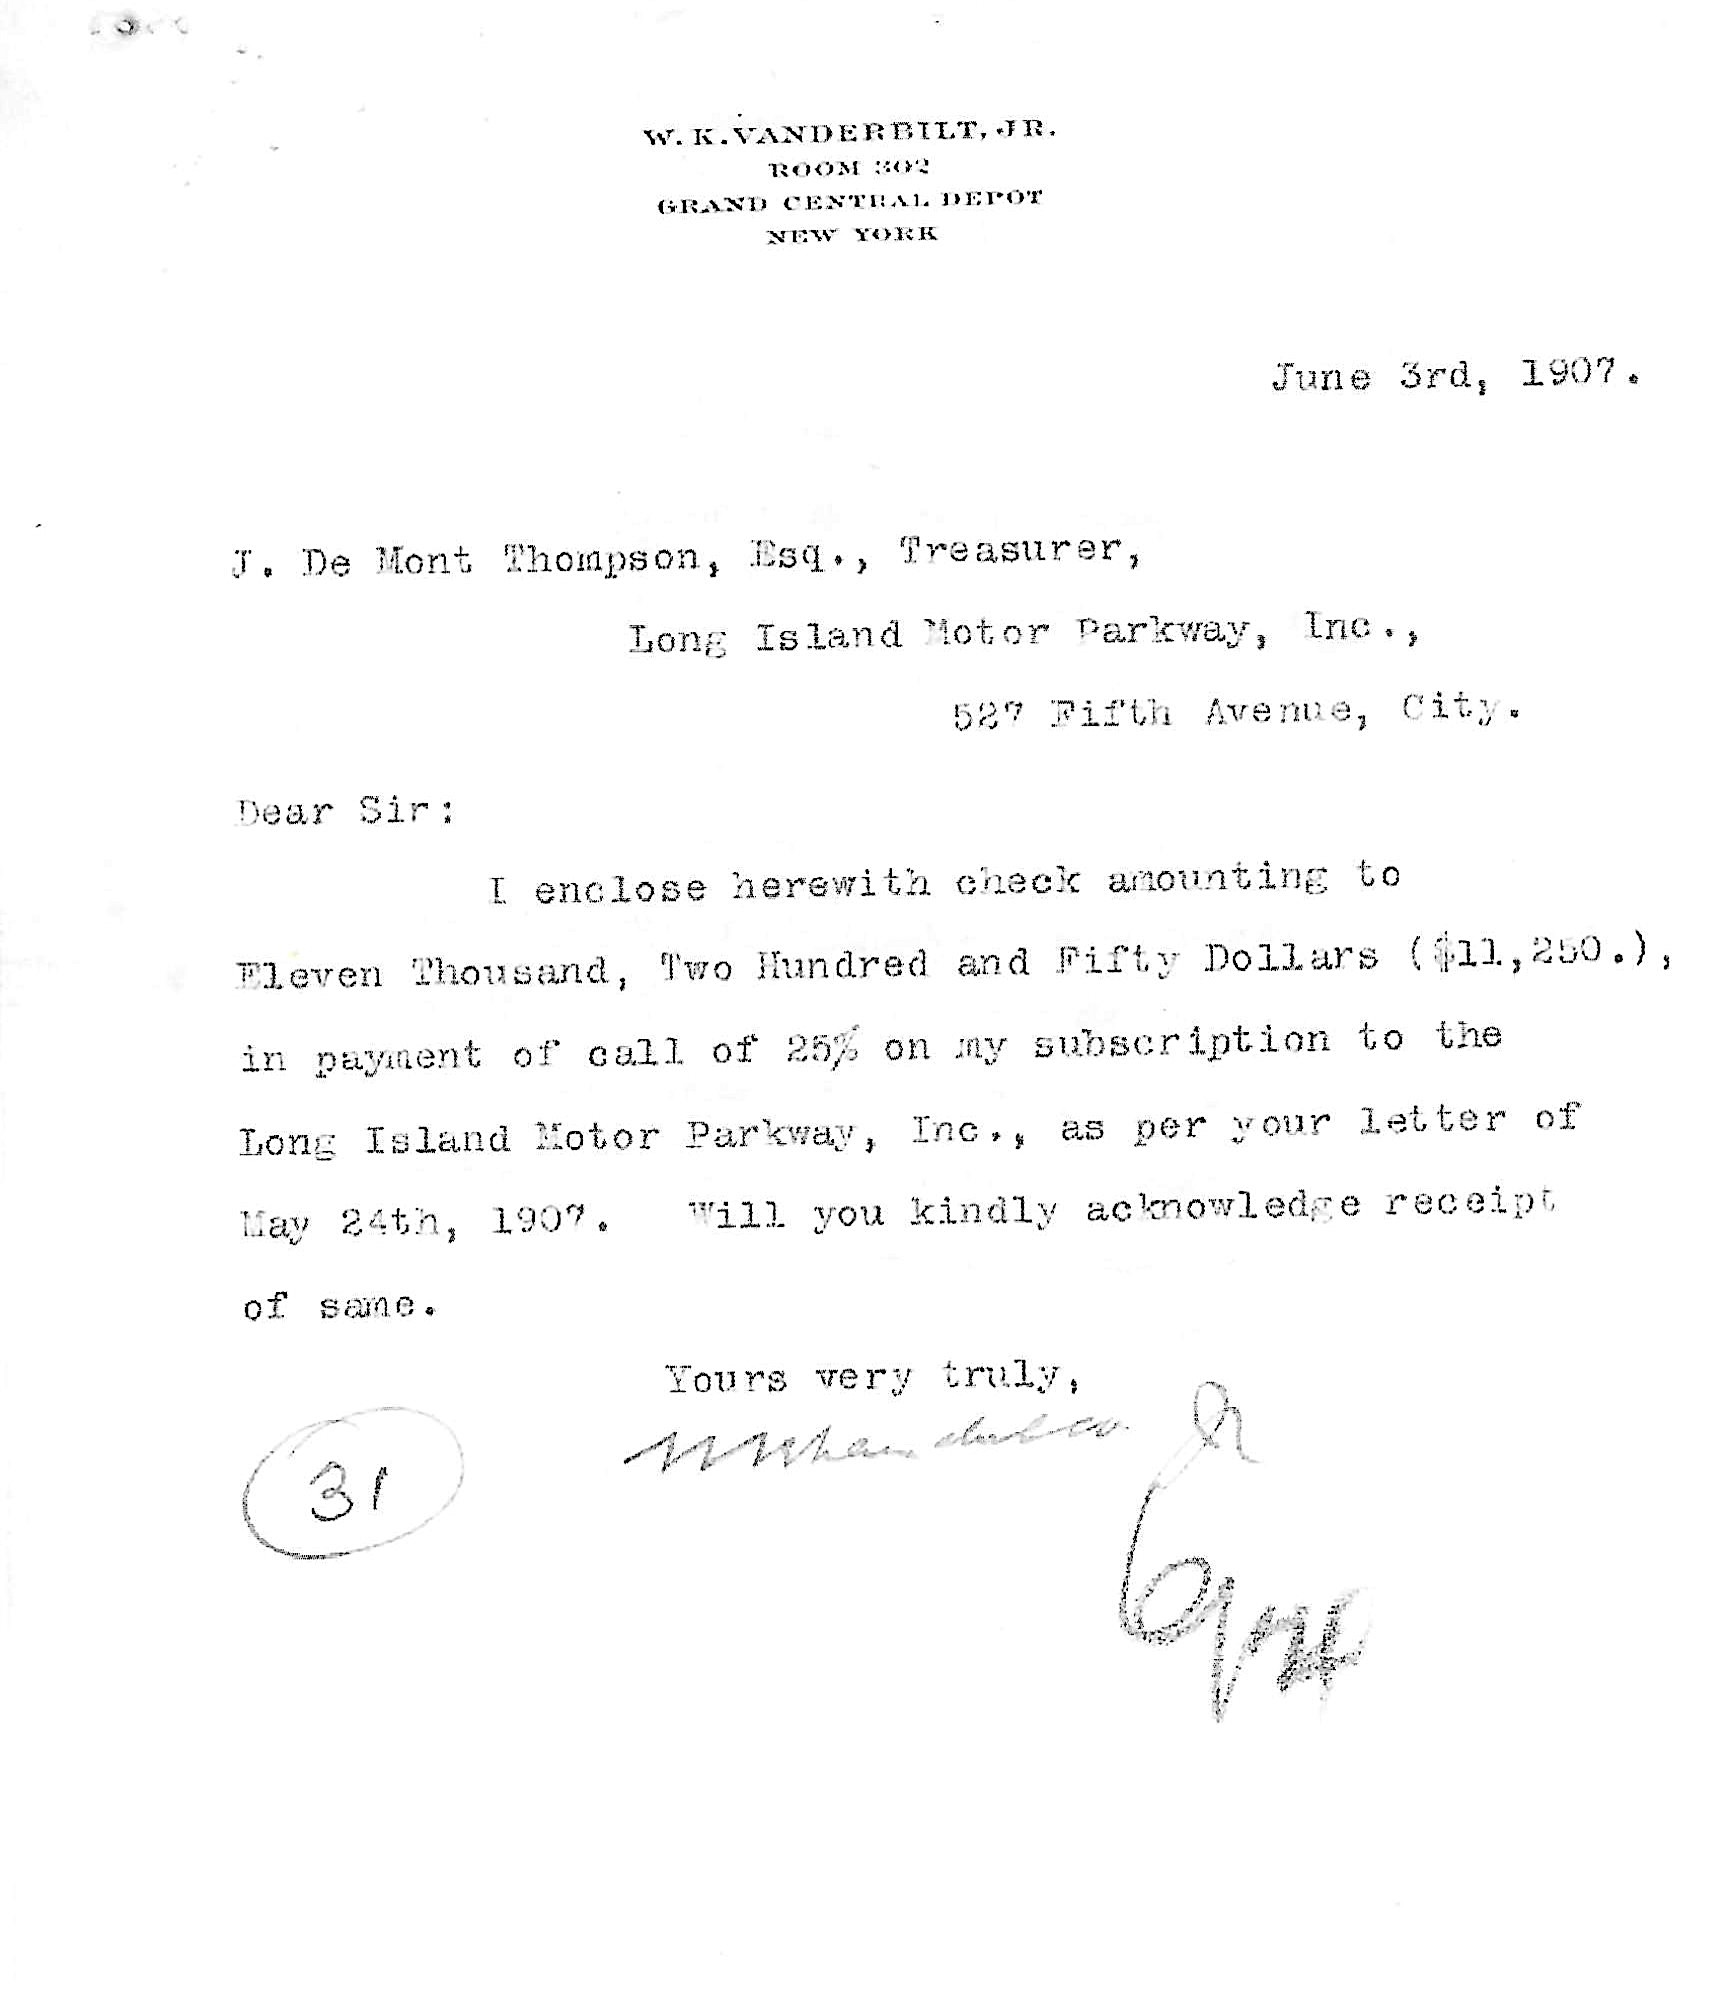 W. K. VANDERBILT, JR.
ROOM 302
GRAND CENTRAL DEPOT
NEW YORK
June 3rd, 1907.
J. De Mont Thompson, Esq., Treasurer,
Long Island Motor Parkway, Inc.,
527 Fifth Avenue, City.
Dear Sir:
I enclose herewith check amounting to
Eleven Thousand, Two Hundred and Fifty Dollars ($11,250.),
in payment of call of 25% on my subscription to the
Long Island Motor Parkway, Inc., as per your letter of
May 24th, 1907. Will you kindly acknowledge receipt
of same.
Yours very truly,
W K Vanderbilt Jr
31